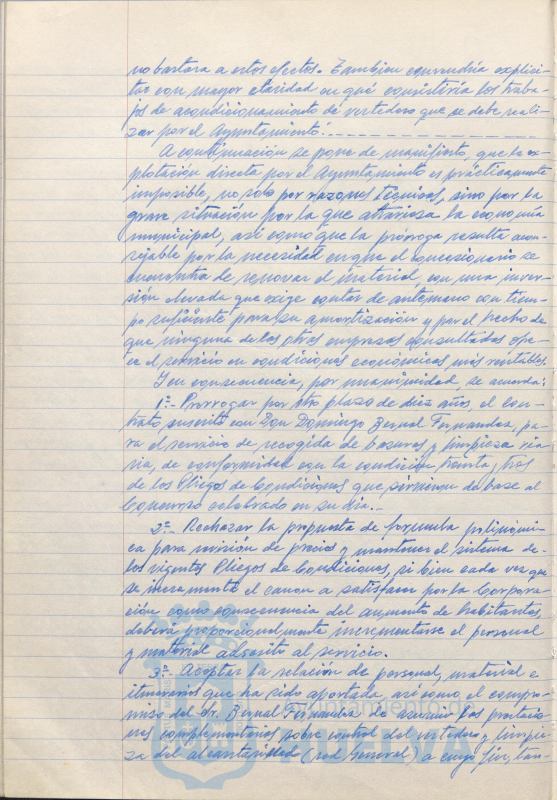 no bastara a estos efectos. Tambien convendria explici-
tar con mayor claridad en qué consistiría los traba-
jos de acondicionamiento de vertedero que se debe reali-
zar por el Ayuntamiento.
A continuación se pone de manifiesto, que la ex-
plotación directa por el Ayuntamiento es prácticamente
imposible, no solo por razones técnicas, sino por la
grave situación por la que atraviesa la economía
municipal, asi como que la prórroga resulta acon-
sejable por la necesidad en que el concesionario se
encuentra de renovar el material, con una inver-
sión elevada que exige contar de antemano con tiem-
po suficiente para su amortización y por el hecho de
que ninguna de las otras empresas consultadas ofre-
ce el servicio en condiciones económicas más rentables.
Y en consecuencia, por unanimidad, se acuerda:
1º.- Prorrogar por otro plazo de diez años, el con-
trato suscrito con Don Domingo Bernal Fernandez, pa-
ra el servicio de recogida de basuras y limpieza via-
ria, de conformidad con la condición treinta y tres
de los Pliegos de Condiciones que sirvieron de base al
Concurso celebrado en su dia.-
2º.- Rechazar la propuesta de formula polinómi-
ca para revisión de precios y mantener el sistema de
los vigentes Pliegos de Condiciones, si bien cada vez que
se incremente el canon a satisfacer por la Corpora-
ción como consecuencia del aumento de habitantes,
deberá proporcionalmente incrementarse el personal
y material adscrito al servicio.
3º.- Aceptar la relación de personal, material e
itinerarios que ha sido aportada, asi como el compro-
miso del Sr. Bernal Fernandez de asumir las prestacio-
nes complementarias sobre control del vertedero y limpie-
za del alcantarillado (red General) a cuyo fin, tan-
Ayuntamiento de
HUELVA